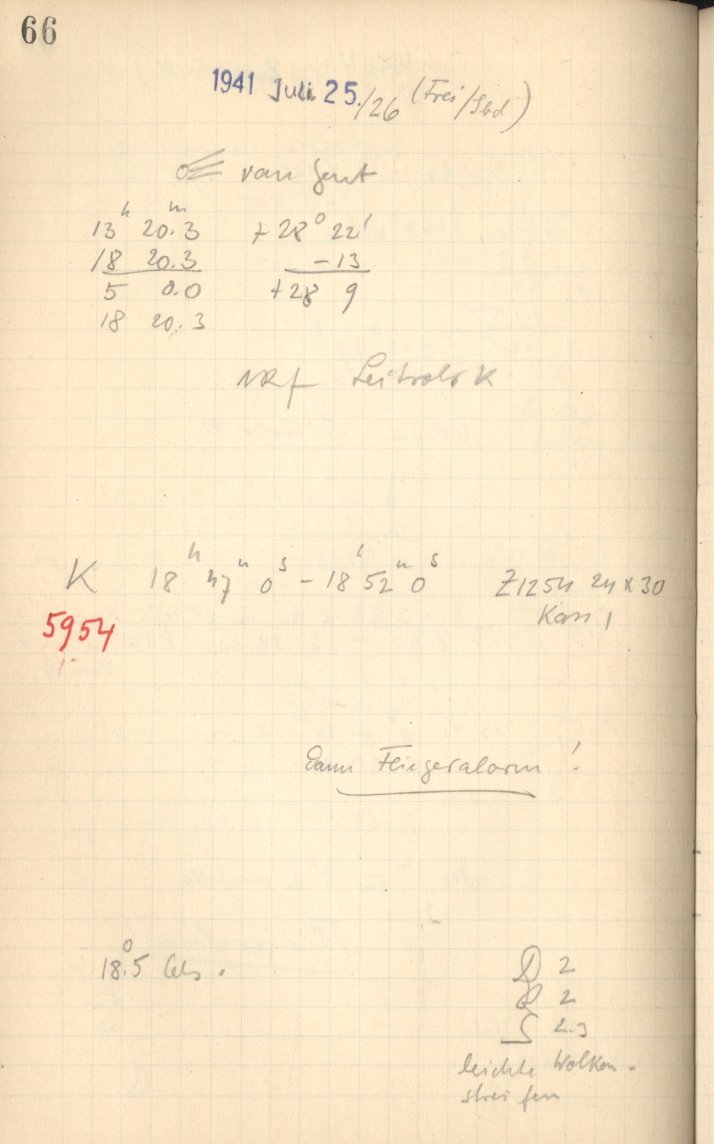 66
1941 Juli 25./26 (Frei/Sbd)
☄ van Gent
13ʰ 20.3ᵐ +28° 22'
18 20.3 -13
5 0.0 +28 9
18 20.3
NRf Leitrohr K
K 18ʰ 47ᵐ 0ˢ - 18ʰ 52ᵐ 0ˢ Z1254 24 x 30
Kass 1
5954
Dann Fliegeralarm!
18.°5 Cels.
D 2
R 2
S 2.3
leichte Wolken-
streifen